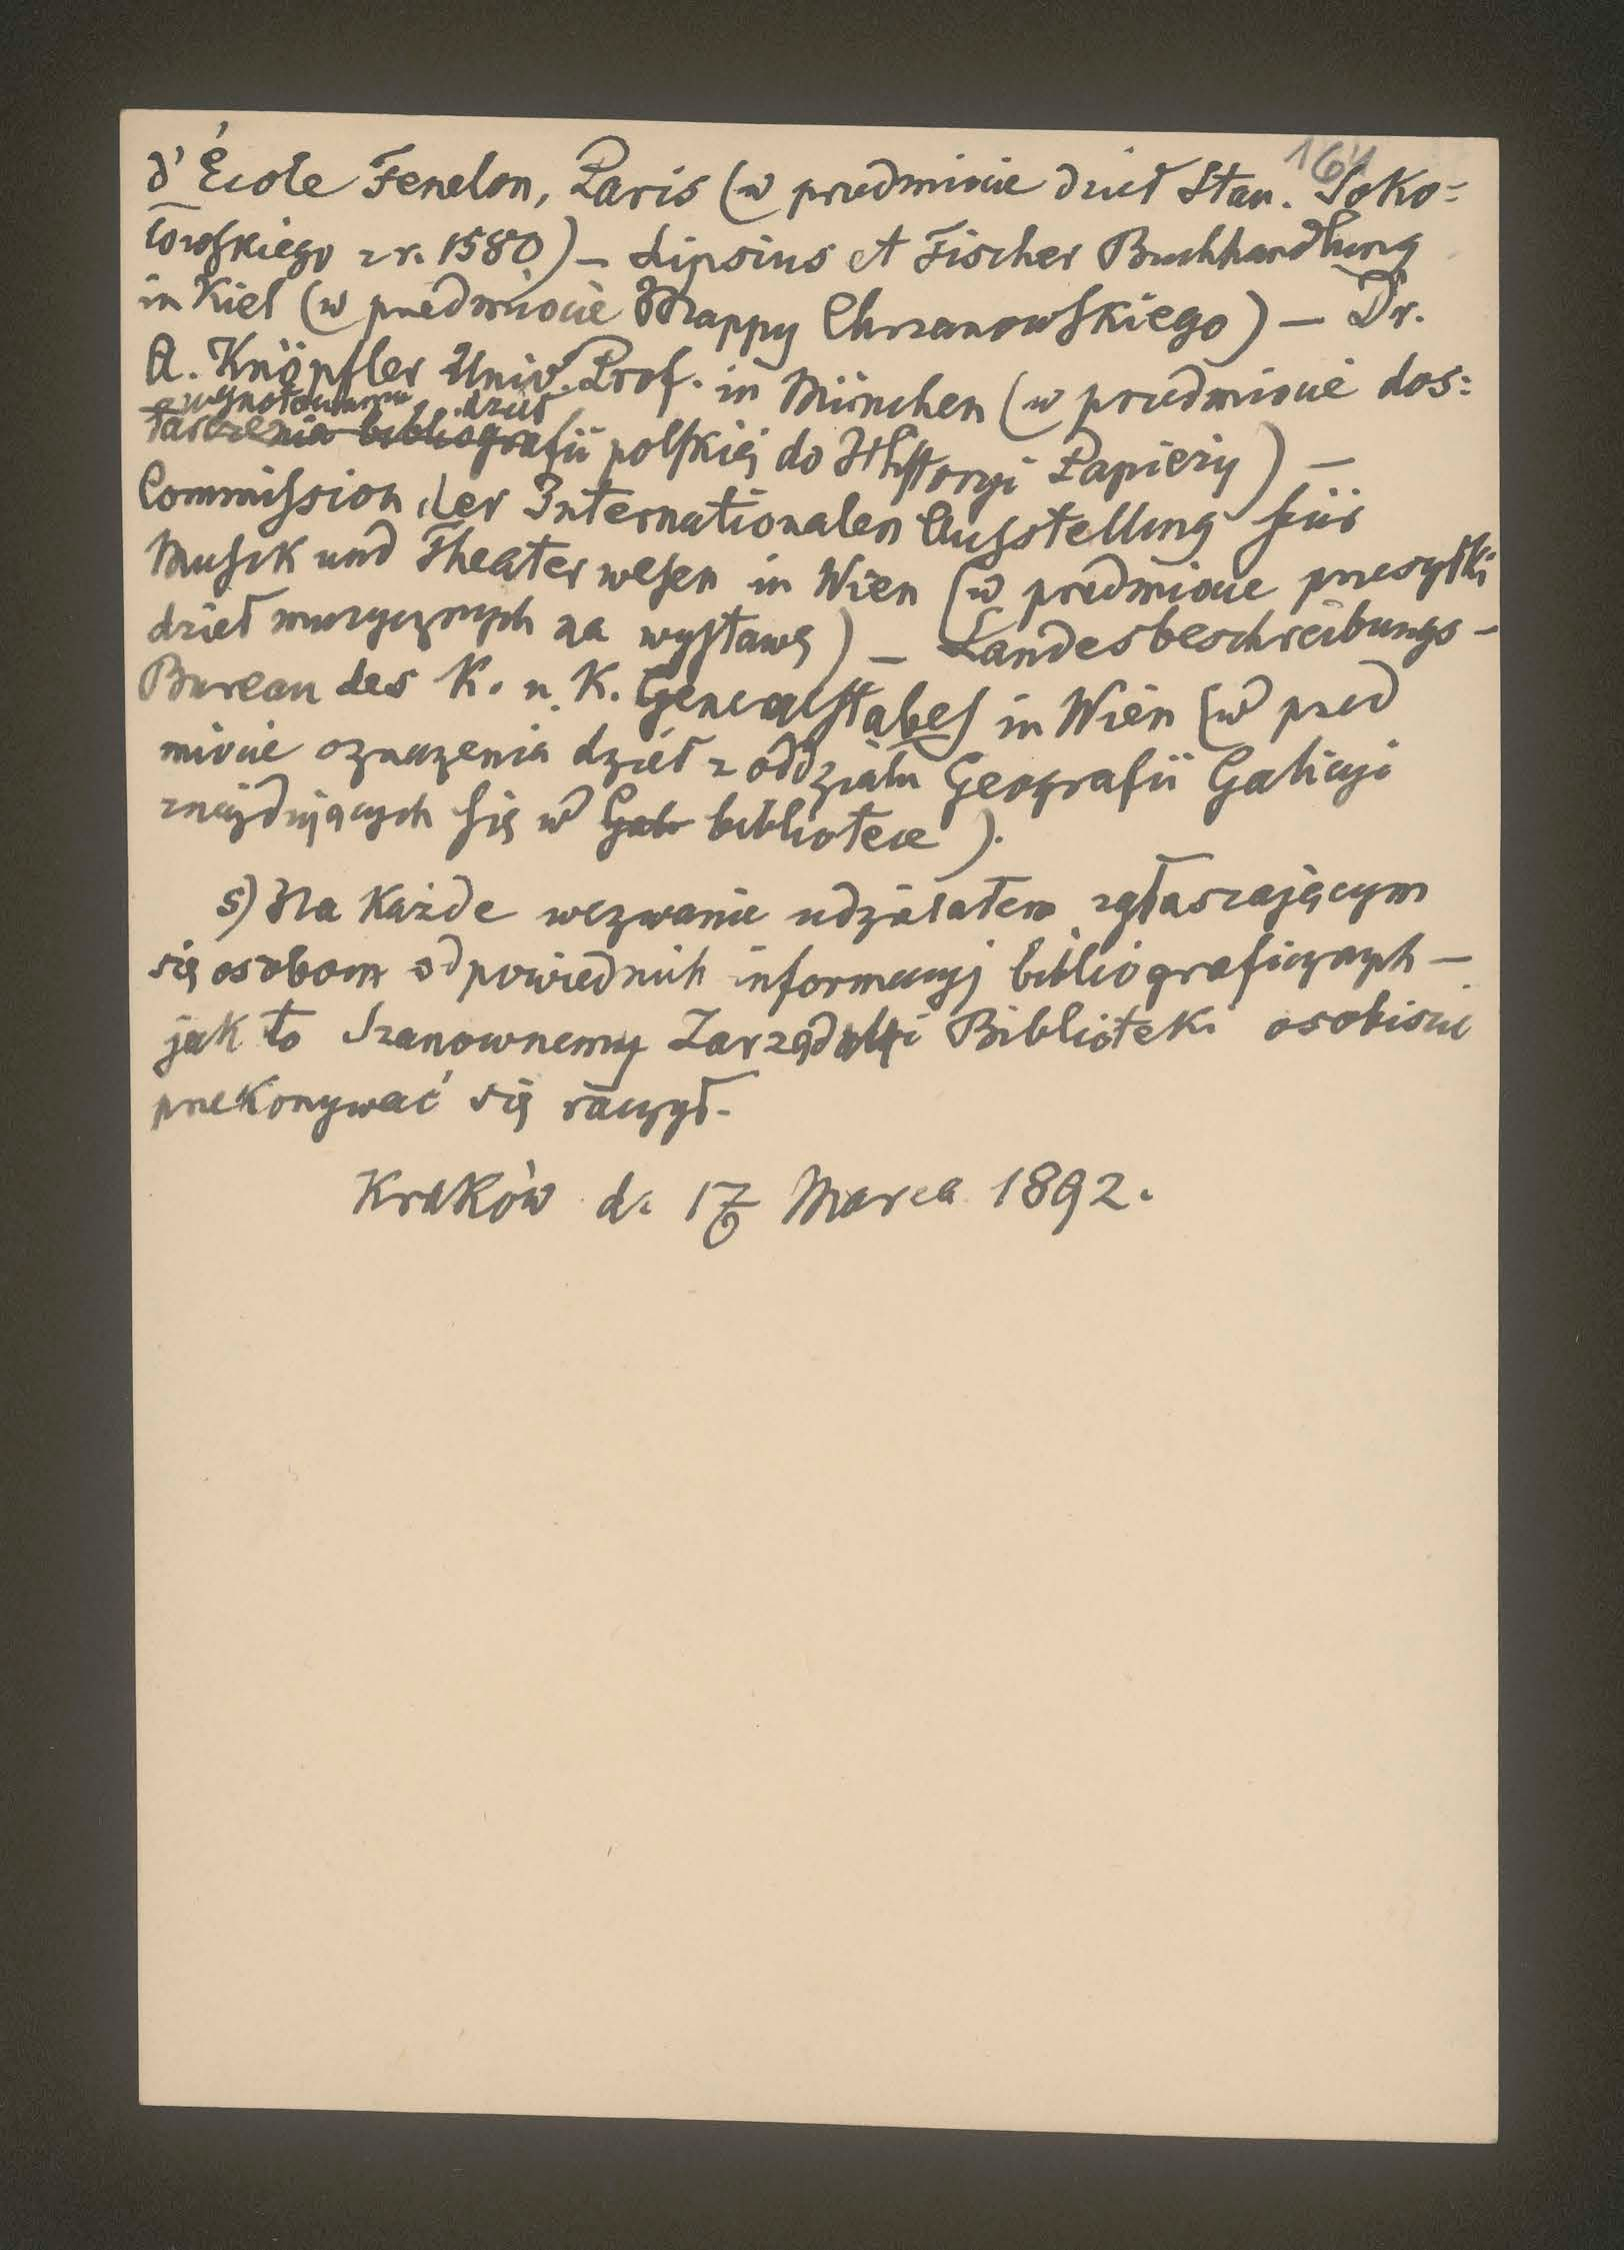 164
d'École Fenelon, Paris (w przedmiocie dzieł Stan. Soko=
łowskiego z r. 1580) – Lipsius et Fischer Buchhandlung
in Kiel (w przedmiocie Mappy Chrzanowskiego) – Dr.
A. Knöpfler Univ. Prof. in München (w przedmiocie dos=
dzieł
tarczenia bibliografii polskiej do Historyi Papieży) –
Commission der Internationalen Ausstellung für
Musik und Theater wesen in Wien (w przedmiocie przesyłki
dzieł muzycznych na wystawę) – Landesbeschreibungs-
Bureau des K. u. K. Generalstabes in Wien (w przed
miocie oznaczenia dzieł z oddziału Geografii Galicyi
znajdujących się w Gab bibliotece).
s) Na każde wezwanie udzielałem zgłaszającym
się osobom odpowiednich informacyj bibliograficznych –
jak to Szanownemu Zarządowi Biblioteki osobiście
przekonywać się raczył.
Kraków d. 17 Marca 1892.